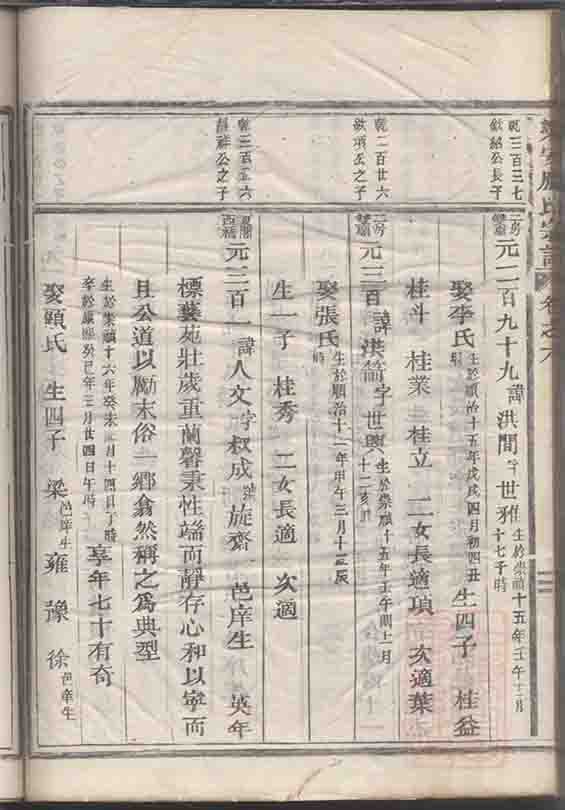 乾三百三七
欽紹公長子
元二百九十九諱洪間字世雅生於崇禎十五年壬午十二月
十七子時
娶李氏生於順治十五年戊戌四月初四丑時生四子 桂益
桂斗 桂業 桂立 二女長適項 次適葉
乾二百廿六
欽項公之子
二房
元三百諱洪簡字世興生於崇禎十五年壬午閏十一月
十二亥時
娶張氏生於順治十一年甲午三月十二辰時
生一子 桂秀 二女長適 次適
乾三百五六
公之子
元三百一諱人文字叔成號旋齋 邑庠生 英年
標藝苑壯歲重蘭馨秉性端而靜存心和以寧而
且公道以勵末俗一鄉翕然稱之爲典型
生於崇禎十六年癸未 月十四日丁時
卒於康熙癸巳年三月廿四日午時 享年七十有奇
娶顧氏 生四子 梁邑庠生 雍 豫 徐邑庠生